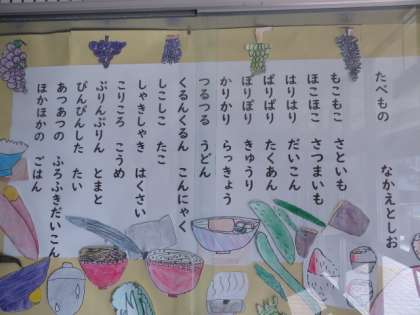 たべもの　なかえとしお
もこもこ　さといも
ほこほこ　さつまいも
はりはり　だいこん
ぱりぱり　たくあん
ぽりぽり　きゅうり
かりかり　らっきょう
つるつる　うどん
くるんくるん　こんにゃく
しこしこ　たこ
しゃきしゃき　はくさい
こりころ　こうめ
ぷりんぷりん　とまと
ぴんぴんした　たい
あつあつの　ふろふきだいこん
ほかほかの　ごはん